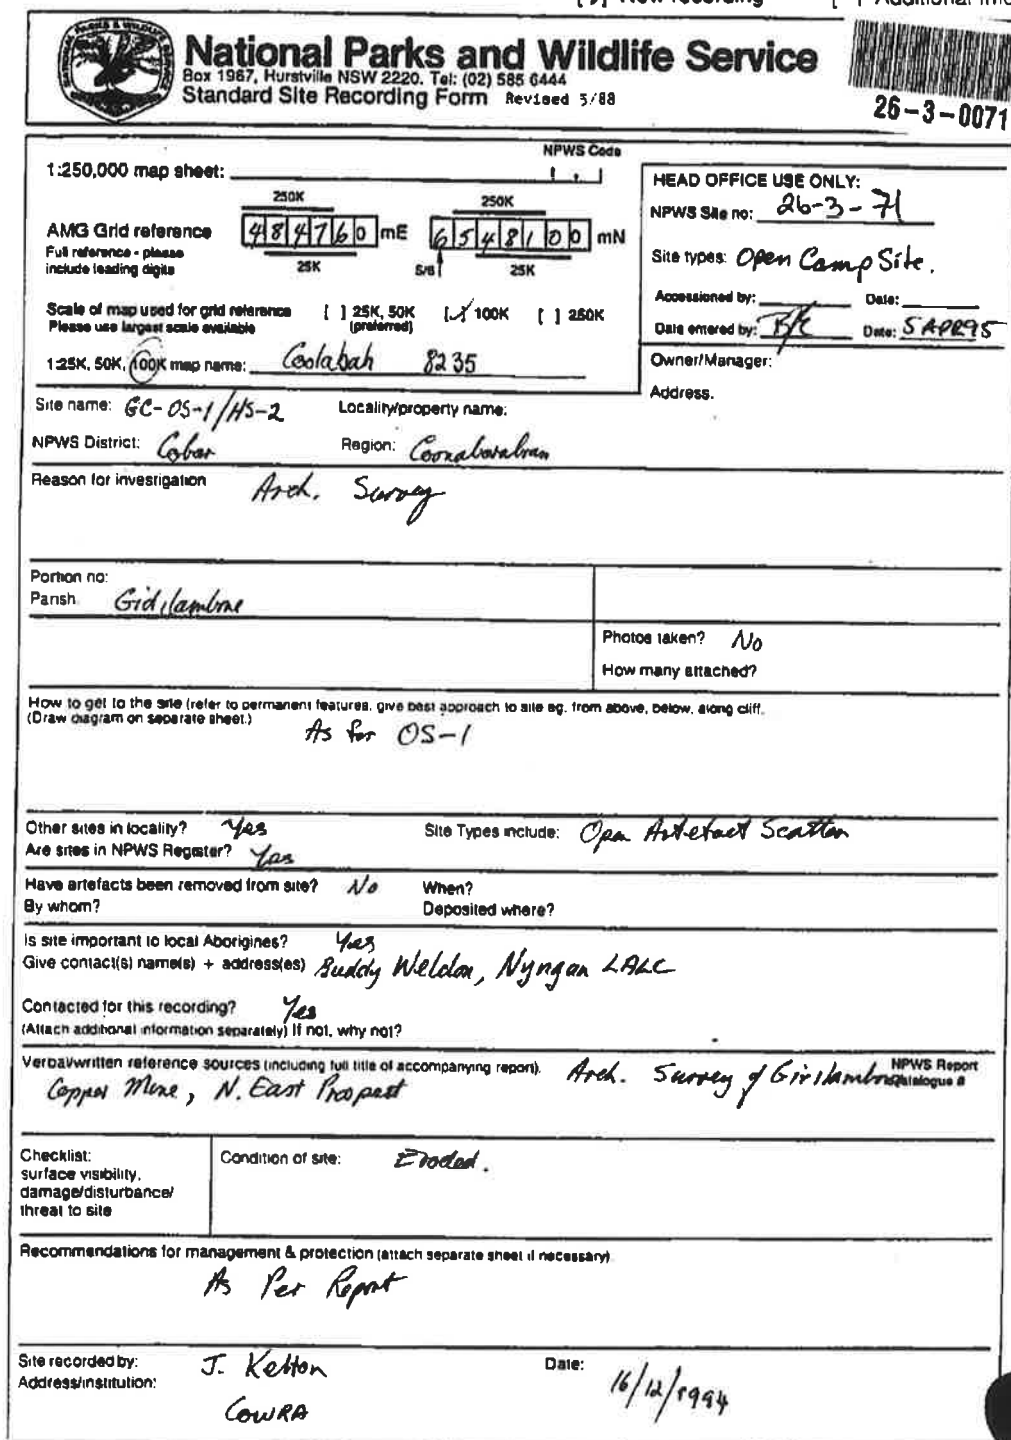 New recording [ ] Additional Info
National Parks and Wildlife Service
Box 1967, Hurstville NSW 2220. Tel: (02) 585 6444
Standard Site Recording Form Revised 5/88
26-3-0071
NPWS Code
1:250,000 map sheet:
250K 250K
AMG Grid reference 484760 mE 6548100 mN
Full reference - please
include leading digits
25K S/6 25K
Scale of map used for grid reference [ ] 25K, 50K [✓] 100K [ ] 250K
Please use largest scale available (preferred)
1:25K, 50K, 100K map name: Coolabah 8235
HEAD OFFICE USE ONLY:
NPWS Site no: 26-3-71
Site types: Open Camp Site.
Accessioned by: Date:
Data entered by: Date: 5 APR 95
Owner/Manager:
Address.
Site name: GC-OS-1/HS-2 Locality/property name:
NPWS District: Cobar Region: Coonabarabran
Reason for investigation Arch. Survey
Portion no:
Parish Gidilambone
Photos taken? No
How many attached?
How to get to the site (refer to permanent features, give best approach to site eg. from above, below, along cliff.
(Draw diagram on separate sheet.)
As for OS-1
Other sites in locality? Yes Site Types include: Open Artefact Scatter
Are sites in NPWS Register? Yes
Have artefacts been removed from site? No When?
By whom? Deposited where?
Is site important to local Aborigines? Yes
Give contact(s) name(s) + address(es) Buddy Weldon, Nyngan LALC
Contacted for this recording? Yes
(Attach additional information separately) If not, why not?
Verbal/written reference sources (including full title of accompanying report). Arch. Survey of Girilambone NPWS Report
Copper Mine, N. East Prospect Catalogue #
Checklist:
surface visibility,
damage/disturbance/
threat to site
Condition of site: Eroded.
Recommendations for management & protection (attach separate sheet if necessary)
As Per Report
Site recorded by: J. Kelton Date: 16/12/1994
Address/institution: COWRA